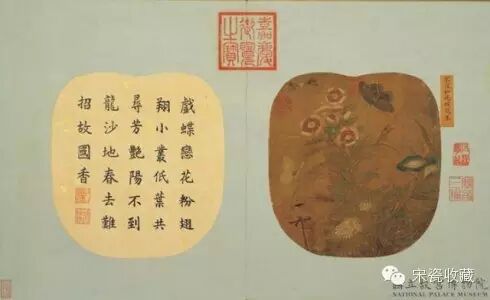 嘉慶
御覽
之寶
戲蝶戀花粉翅
翔小叢低葉共
尋芳艷陽不到
龍沙地春去難
招故國香
國立故宮博物院
NATIONAL PALACE MUSEUM
宋瓷收藏